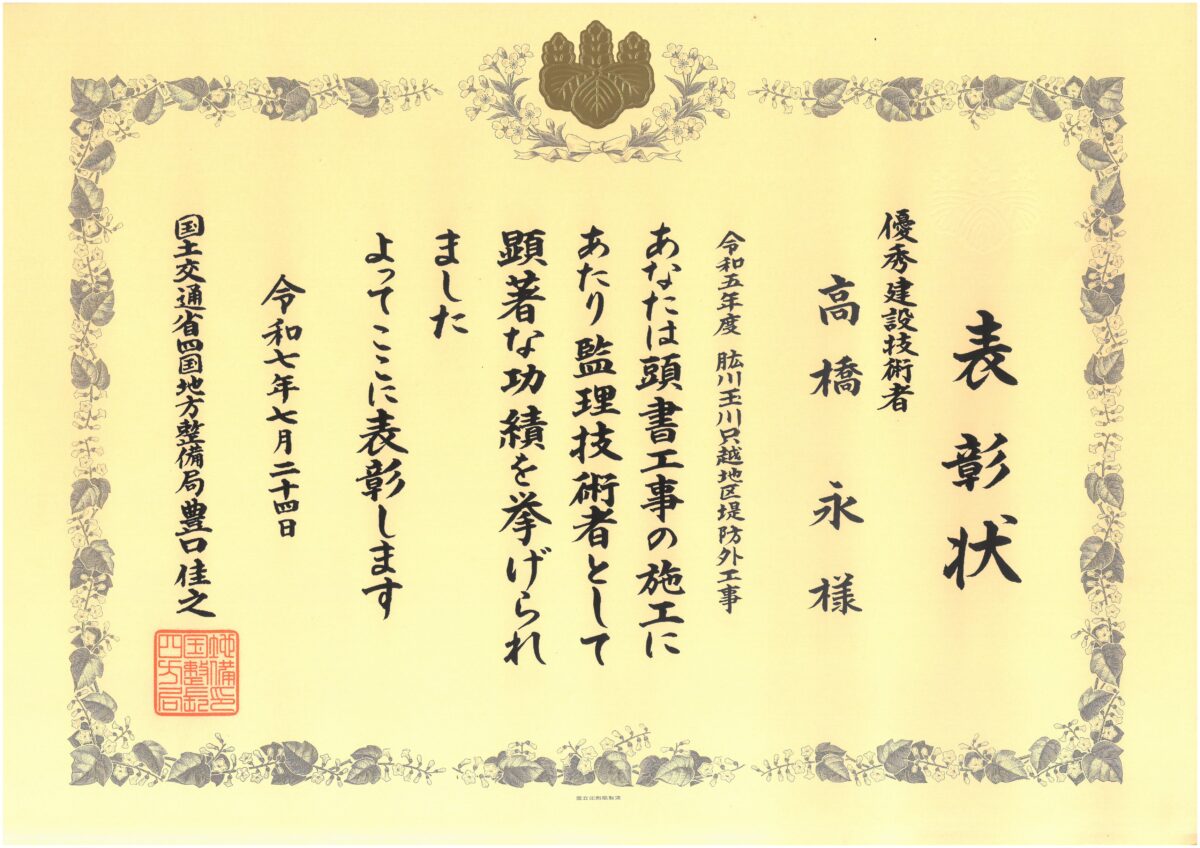 表彰状
優秀建設技術者
高橋 永 様
令和五年度 肱川玉川只越地区堤防外工事
あなたは頭書工事の施工に
あたり監理技術者として
顕著な功績を挙げられ
ました
よってここに表彰します
令和七年七月二十四日
国土交通省四国地方整備局長 豊口佳之